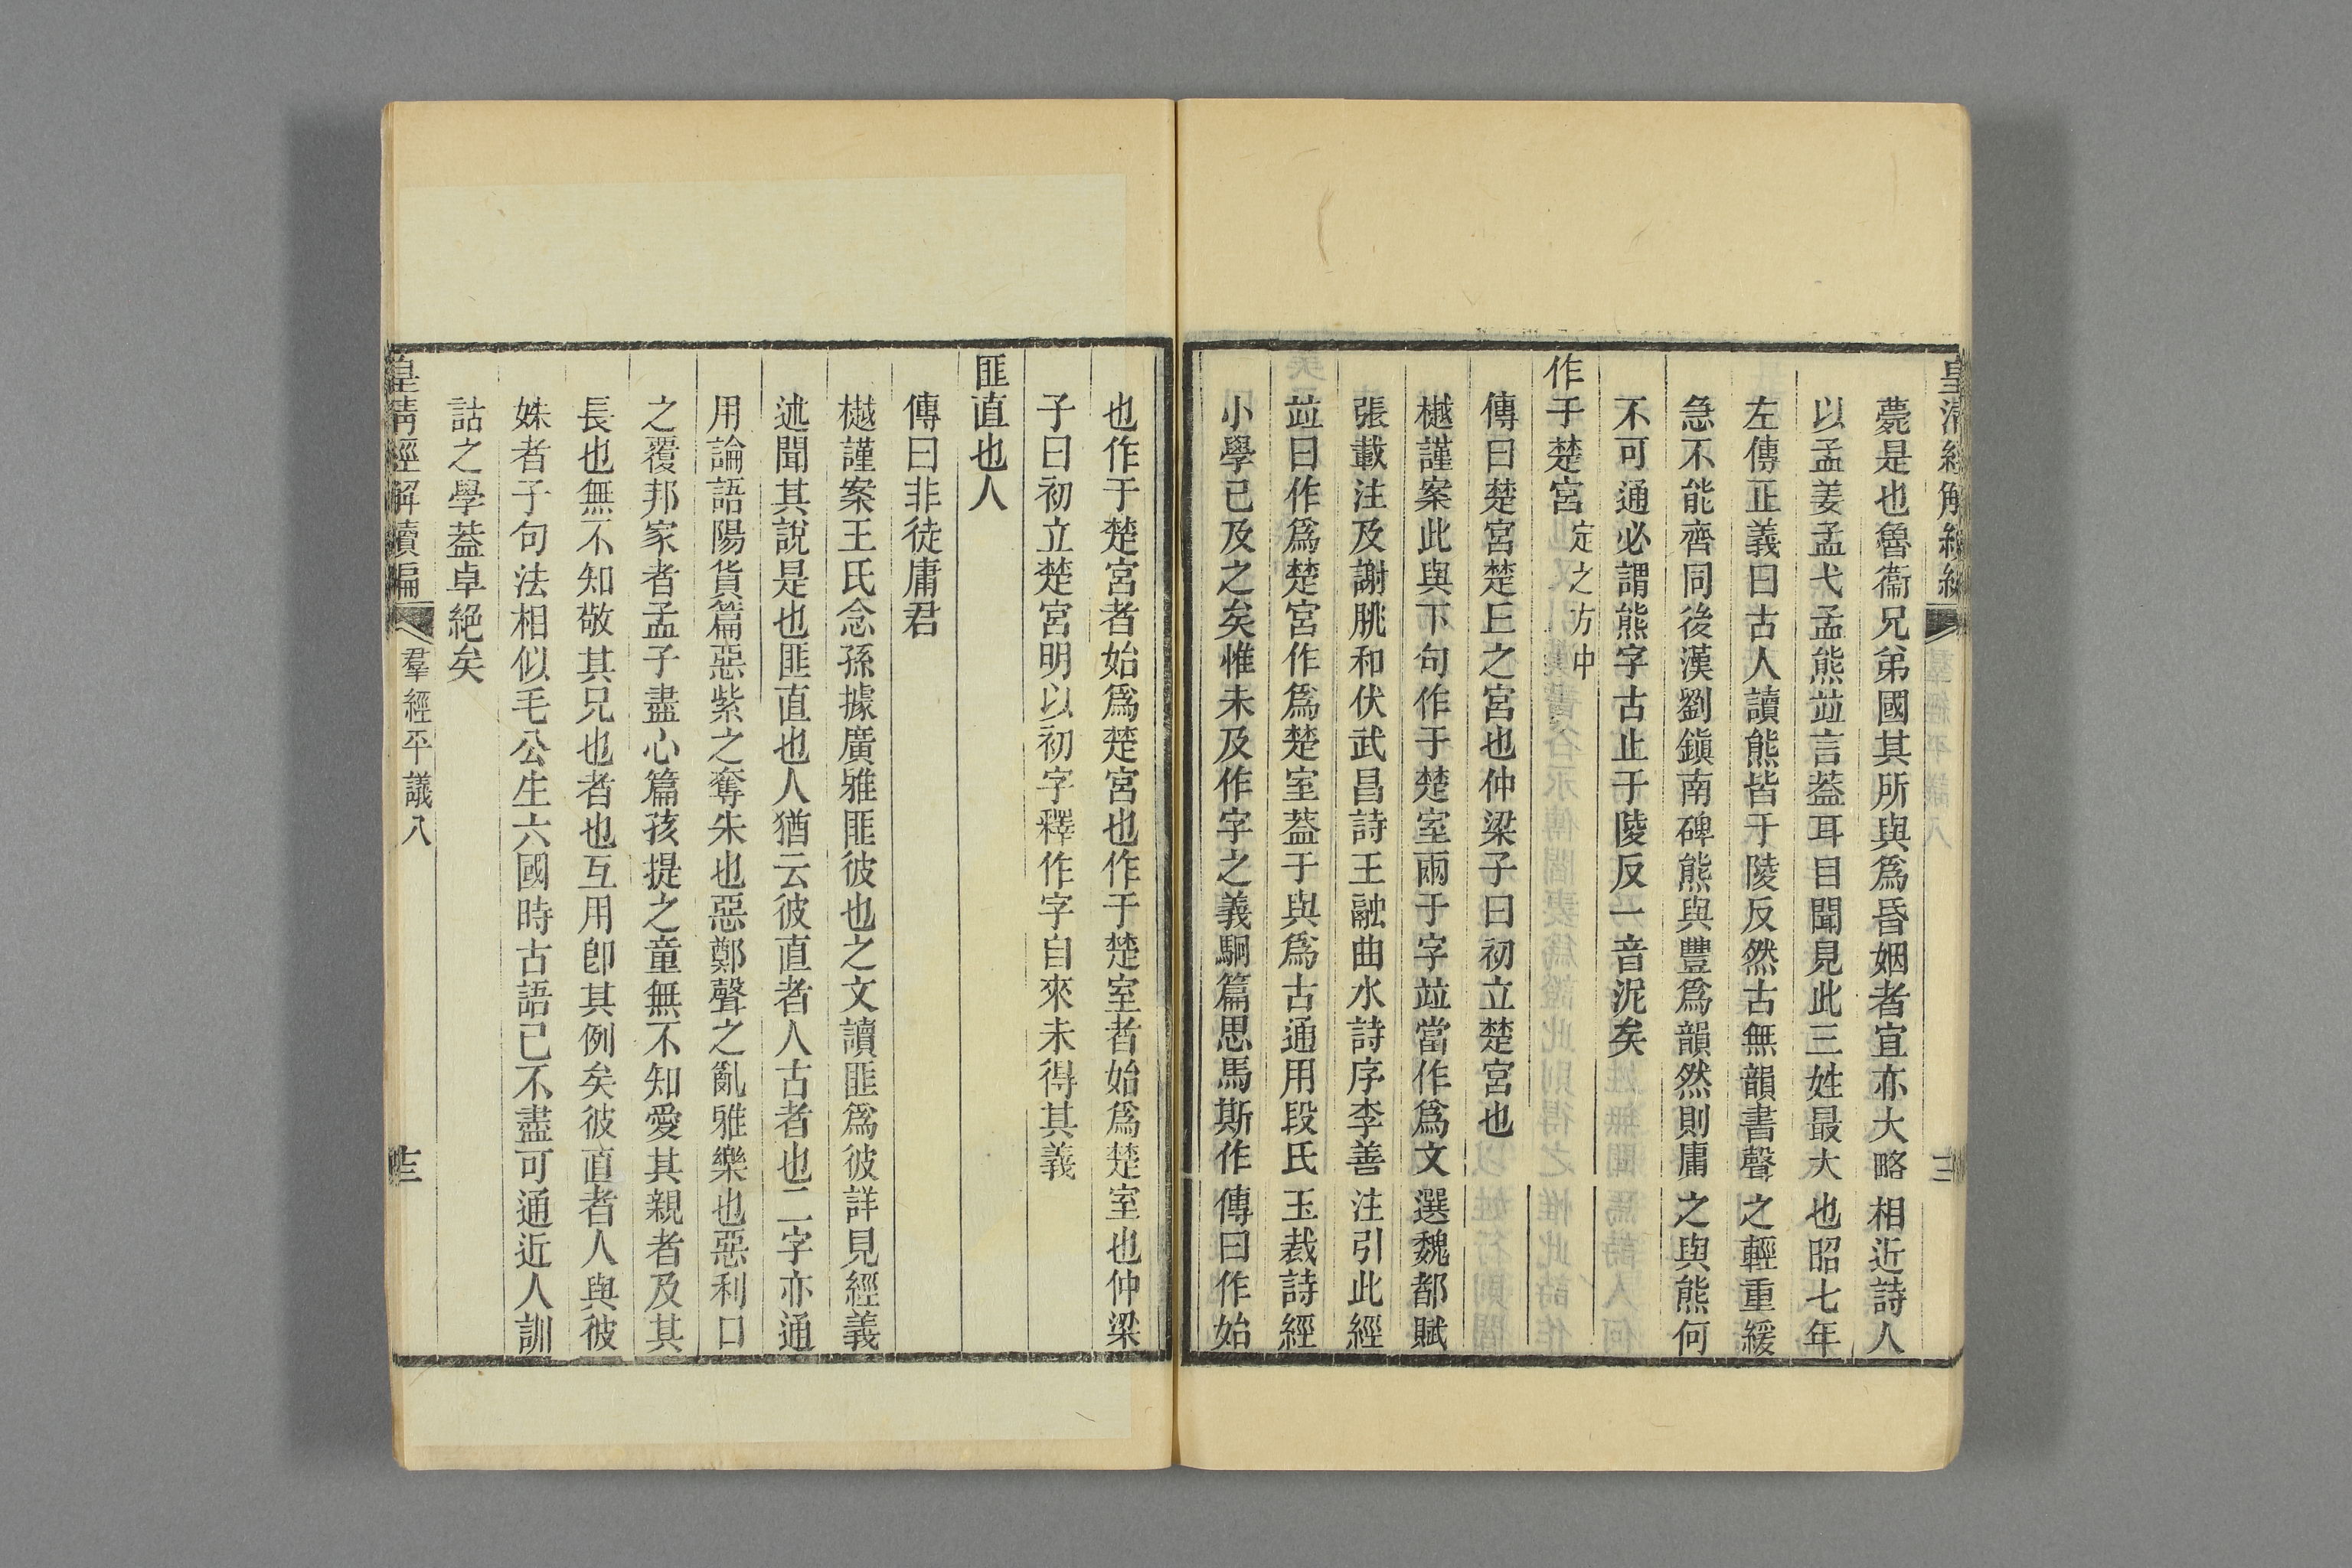 薨是也魯衞兄弟國其所與爲昏姻者宜亦大略相近詩人
以孟姜孟弋孟熊竝言葢耳目聞見此三姓最大也昭七年
左傳正義曰古人讀熊皆于陵反然古無韻書聲之輕重緩
急不能齊同後漢劉鎭南碑熊與豐爲韻然則庸之與熊何
不可通必謂熊字古止于陵反一音泥矣
作于楚宮 定之方中
傳曰楚宮楚丘之宮也仲梁子曰初立楚宮也
樾謹案此與下句作于楚室兩于字竝當作爲文選魏都賦
張載注及謝朓和伏武昌詩王融曲水詩序李善注引此經
竝曰作爲楚宮作爲楚室葢于與爲古通用段氏玉裁詩經
小學已及之矣惟未及作字之義駉篇思馬斯作傳曰作始
也作于楚宮者始爲楚宮也作于楚室者始爲楚室也仲梁
子曰初立楚宮明以初字釋作字自來未得其義
匪直也人
傳曰非徒庸君
樾謹案王氏念孫據廣雅匪彼也之文讀匪爲彼詳見經義
述聞其說是也匪直也人猶云彼直者人古者也二字亦通
用論語陽貨篇惡紫之奪朱也惡鄭聲之亂雅樂也惡利口
之覆邦家者孟子盡心篇孩提之童無不知愛其親者及其
長也無不知敬其兄也者也互用卽其例矣彼直者人與彼
姝者子句法相似毛公生六國時古語已不盡可通近人訓
詁之學葢卓絕矣
皇淸經解續編 羣經平議八 十三